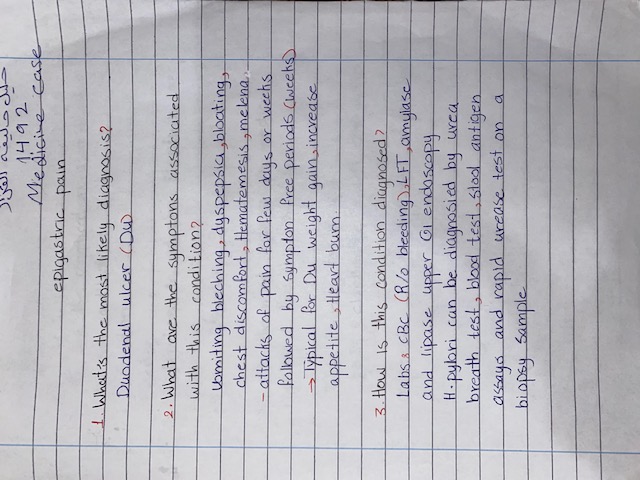 1492
Medicine case
epigastric pain
1. What's the most likely diagnosis?
Duodenal ulcer (Du)
2. What are the symptoms associated
with this condition?
Vomiting bleching, dyspepsia, bloating,
chest discomfort, Hematemesis, melena.
- attacks of pain for few days or weeks
followed by sympton free periods (weeks)
→ Typical for Du weight gain, increase
appetite, Heart burn
3. How is this condition diagnosed?
Labs: CBC (R/o bleeding), LFT, amylase
and lipase upper GI endoscopy
H.pylori can be diagnosied by urea
breath test, blood test, stool antigen
assays and rapid urease test on a
biopsy sample